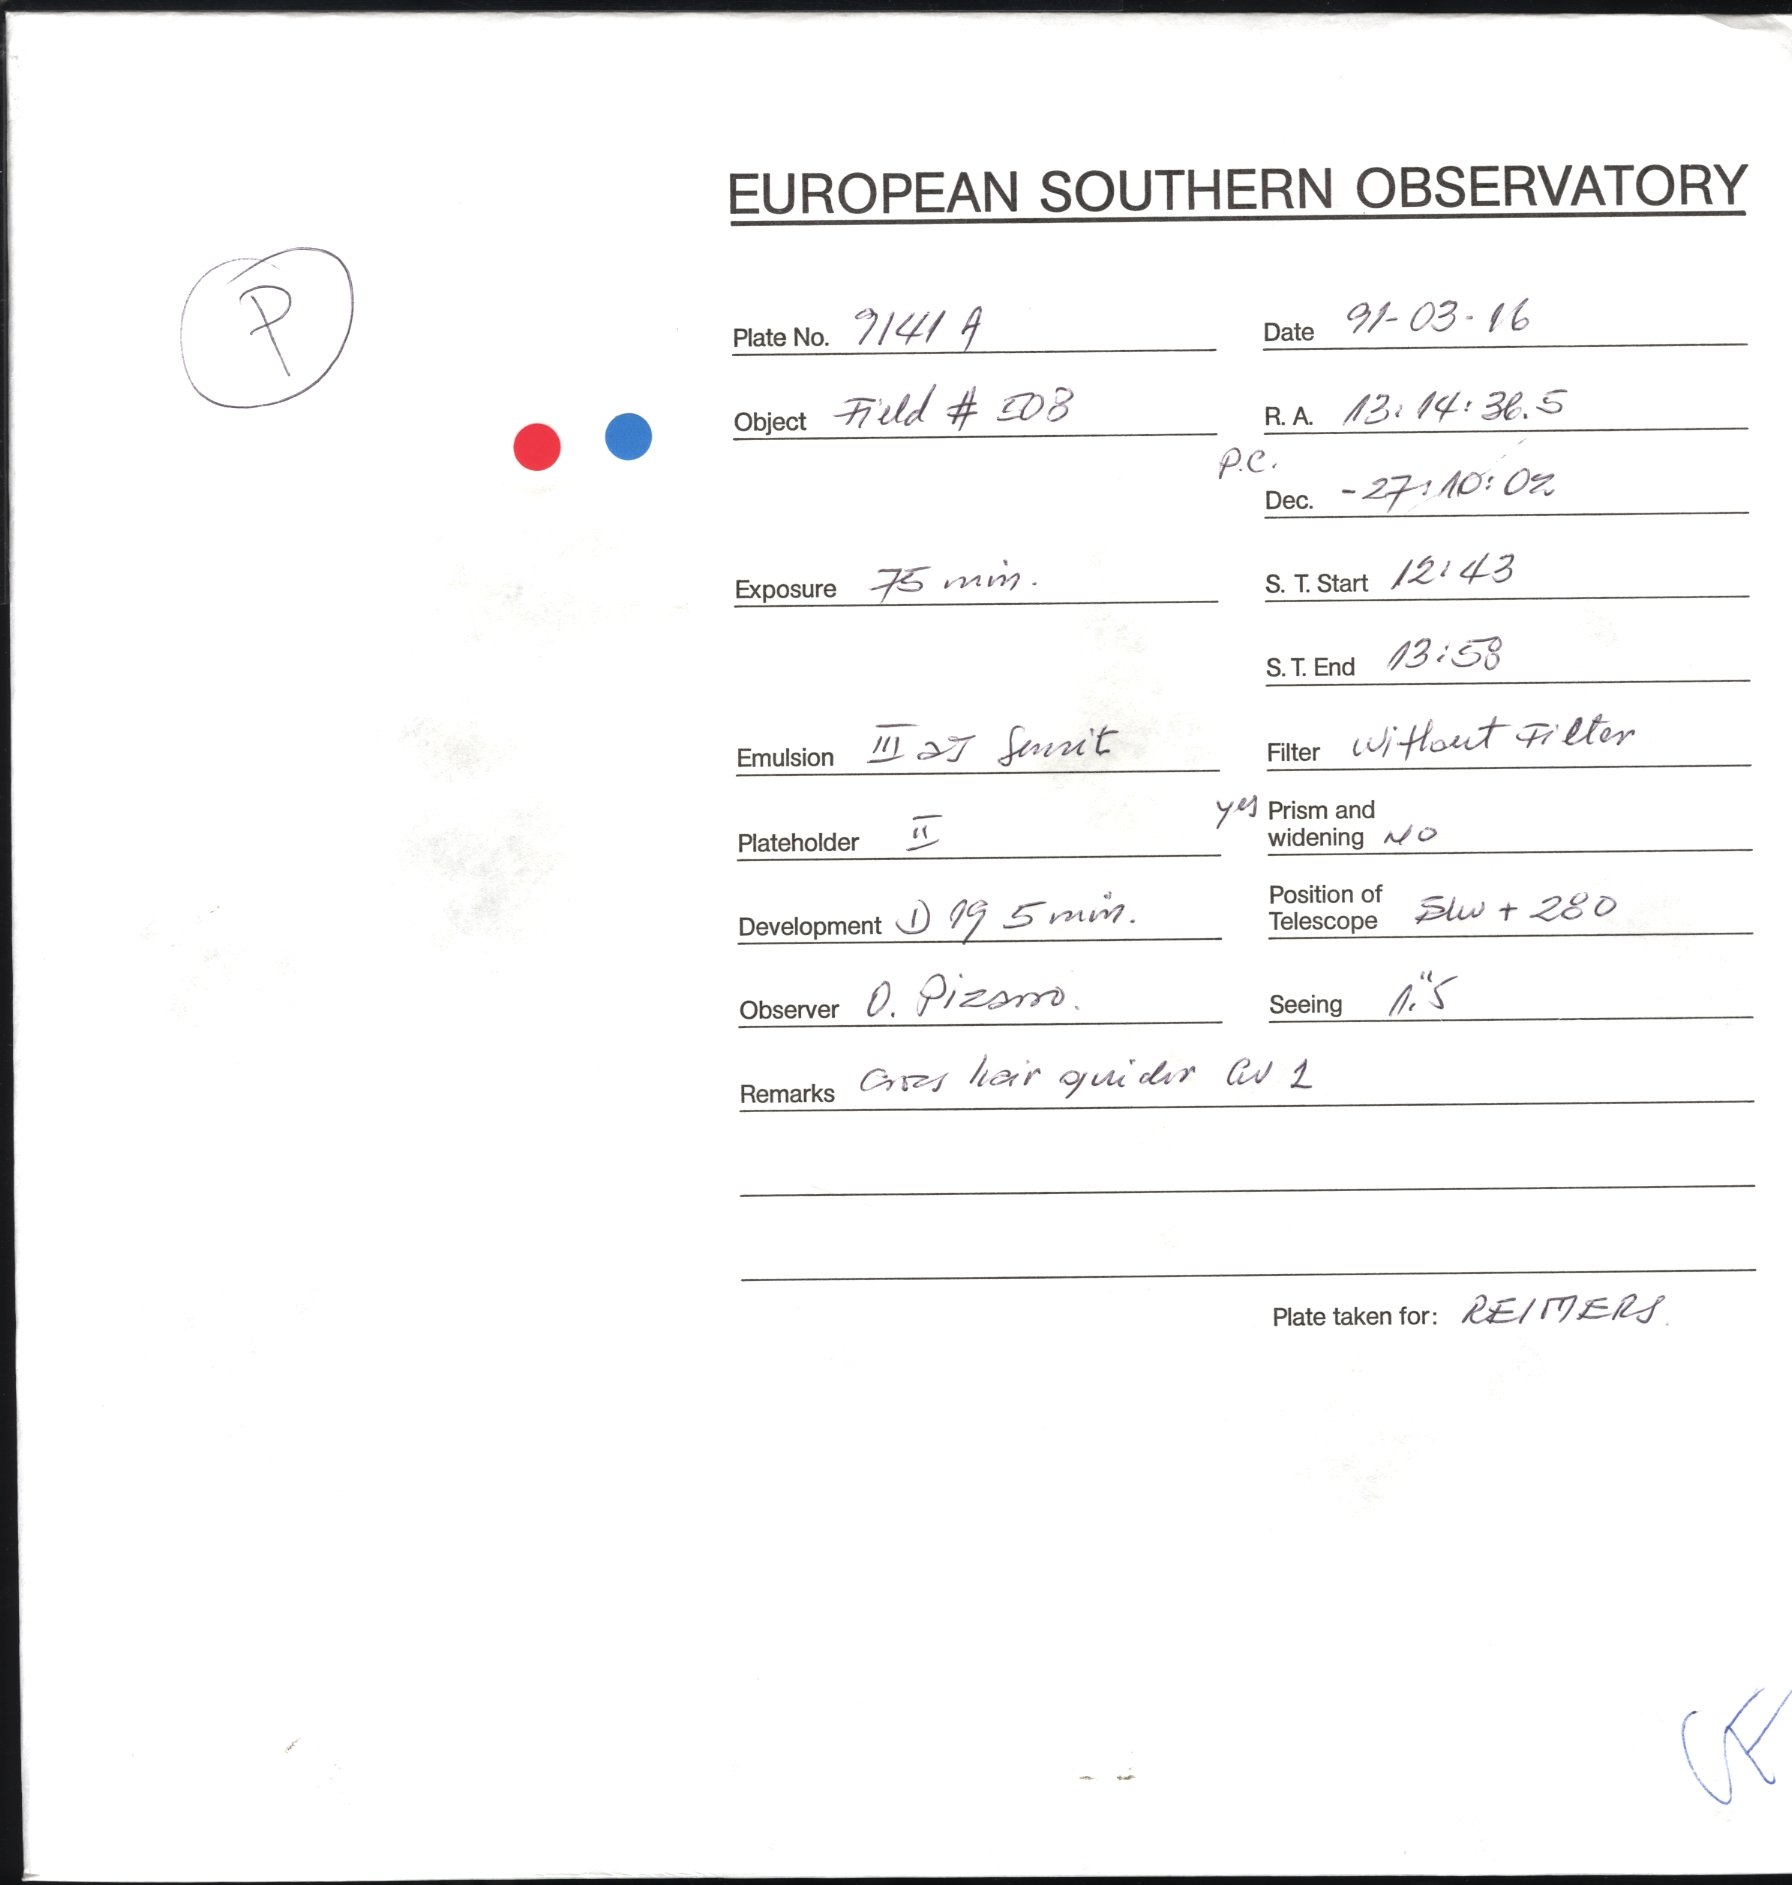 EUROPEAN SOUTHERN OBSERVATORY
P
Plate No. 9141 A
Date 91-03-16
Object Field # 508
R. A. 13:14:36.5
P.C.
Dec. -27:10:02
Exposure 75 min.
S. T. Start 12:43
S. T. End 13:58
Emulsion III aJ Sensit
Filter Without Filter
Plateholder II
yes Prism and
widening NO
Development ① 19 5 min.
Position of
Telescope + 280
Observer O. Pizarro.
Seeing 1."5
Remarks Cross hair guider 1
Plate taken for: REIMERS.